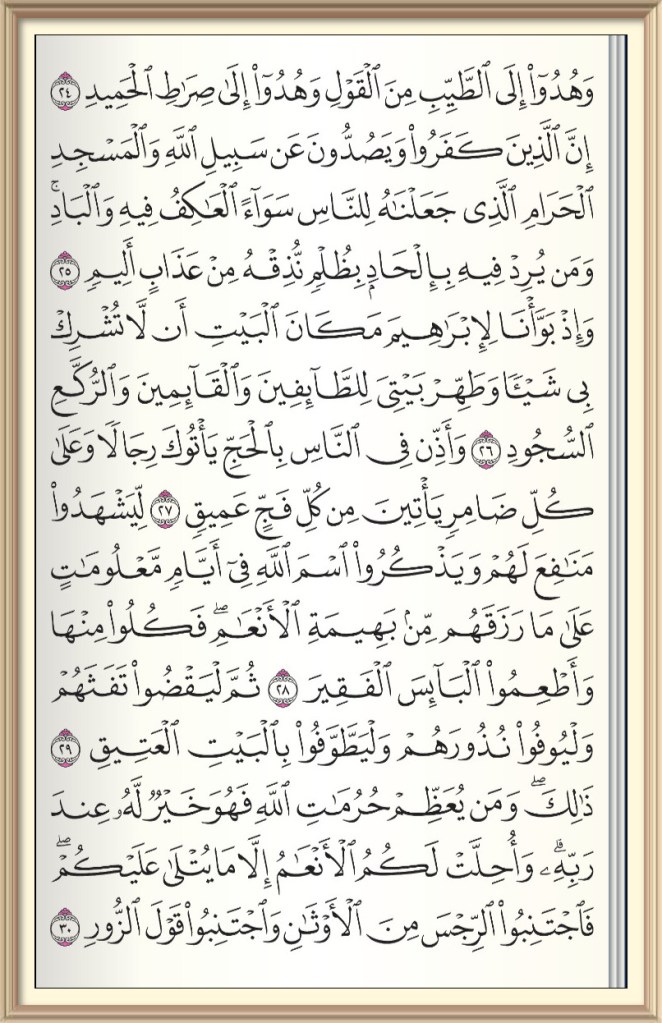 وَهُدُوٓاْ إِلَى ٱلطَّيِّبِ مِنَ ٱلْقَوْلِ وَهُدُوٓاْ إِلَىٰ صِرَٰطِ ٱلْحَمِيدِ ٢٤
إِنَّ ٱلَّذِينَ كَفَرُواْ وَيَصُدُّونَ عَن سَبِيلِ ٱللَّهِ وَٱلْمَسْجِدِ
ٱلْحَرَامِ ٱلَّذِى جَعَلْنَٰهُ لِلنَّاسِ سَوَآءً ٱلْعَٰكِفُ فِيهِ وَٱلْبَادِۚ
وَمَن يُرِدْ فِيهِ بِإِلْحَادٍۭ بِظُلْمٍ نُّذِقْهُ مِنْ عَذَابٍ أَلِيمٍ ٢٥
وَإِذْ بَوَّأْنَا لِإِبْرَٰهِيمَ مَكَانَ ٱلْبَيْتِ أَن لَّا تُشْرِكْ
بِى شَيْـًٔا وَطَهِّرْ بَيْتِىَ لِلطَّآئِفِينَ وَٱلْقَآئِمِينَ وَٱلرُّكَّعِ
ٱلسُّجُودِ ٢٦ وَأَذِّن فِى ٱلنَّاسِ بِٱلْحَجِّ يَأْتُوكَ رِجَالًا وَعَلَىٰ
كُلِّ ضَامِرٍ يَأْتِينَ مِن كُلِّ فَجٍّ عَمِيقٍ ٢٧ لِّيَشْهَدُواْ
مَنَٰفِعَ لَهُمْ وَيَذْكُرُواْ ٱسْمَ ٱللَّهِ فِىٓ أَيَّامٍ مَّعْلُومَٰتٍ
عَلَىٰ مَا رَزَقَهُم مِّنۢ بَهِيمَةِ ٱلْأَنْعَٰمِۖ فَكُلُواْ مِنْهَا
وَأَطْعِمُواْ ٱلْبَآئِسَ ٱلْفَقِيرَ ٢٨ ثُمَّ لْيَقْضُواْ تَفَثَهُمْ
وَلْيُوفُواْ نُذُورَهُمْ وَلْيَطَّوَّفُواْ بِٱلْبَيْتِ ٱلْعَتِيقِ ٢٩
ذَٰلِكَۖ وَمَن يُعَظِّمْ حُرُمَٰتِ ٱللَّهِ فَهُوَ خَيْرٌ لَّهُۥ عِندَ
رَبِّهِۦۗ وَأُحِلَّتْ لَكُمُ ٱلْأَنْعَٰمُ إِلَّا مَا يُتْلَىٰ عَلَيْكُمْۖ
فَٱجْتَنِبُواْ ٱلرِّجْسَ مِنَ ٱلْأَوْثَٰنِ وَٱجْتَنِبُواْ قَوْلَ ٱلزُّورِ ٣٠